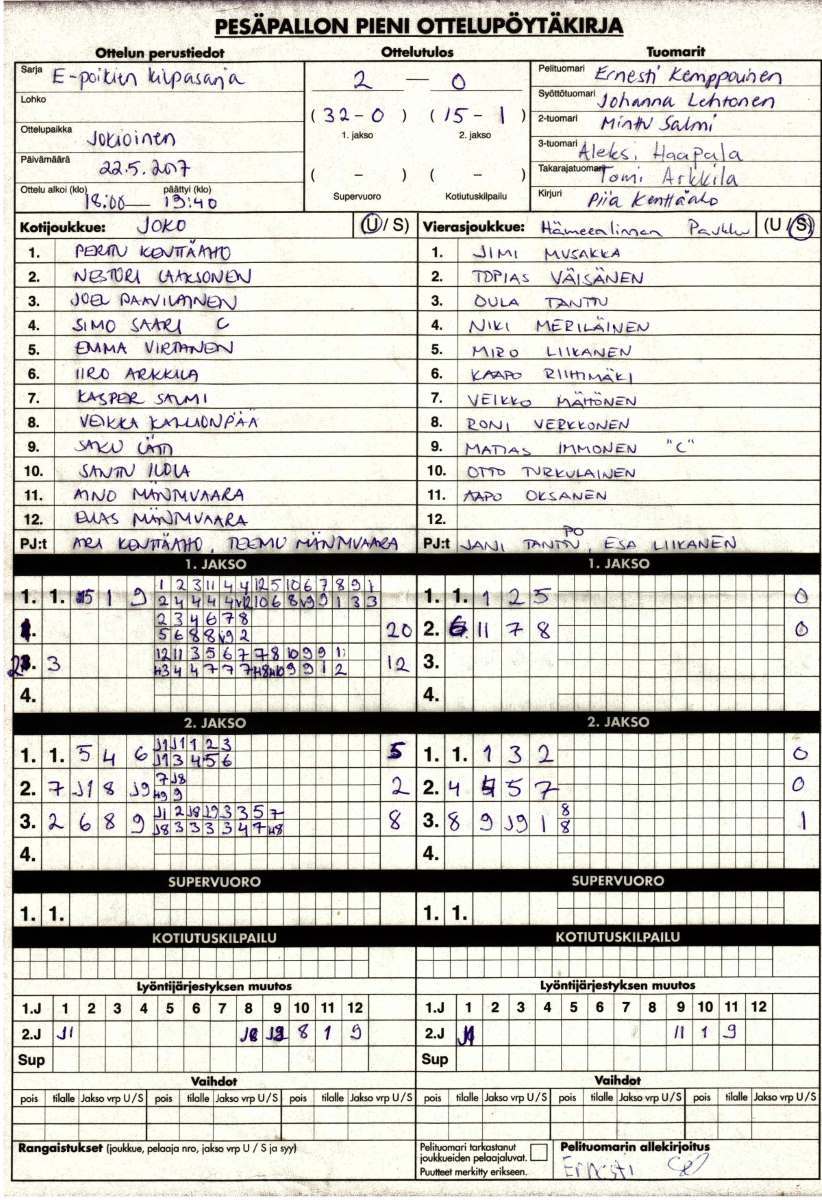 PESÄPALLON PIENI OTTELUPÖYTÄKIRJA
Ottelun perustiedot Ottelutulos Tuomarit
Sarja E-poikien kilpasarja
Lohko
Ottelupaikka Jokioinen
Päivämäärä 22.5.2017
Ottelu alkoi (klo) päättyi (klo)
18:00 — 19:40
2 — 0
(32-0) (15-1)
1. jakso 2. jakso
( - ) ( - )
Supervuoro Kotiutuskilpailu
Pelituomari Ernesti Kemppainen
Syöttötuomari Johanna Lehtonen
2-tuomari Minttu Salmi
3-tuomari Aleksi Haapala
Takarajatuomari Tomi Arkkila
Kirjuri Piia Kenttäaho
Kotijoukkue: JOKO (U / S) Vierasjoukkue: Hämeenlinnan (U / S)
1. PERTTU KENTTÄAHO 1. JIMI MUSAKKA
2. NESTORI LAAKSONEN 2. TOPIAS VÄISÄNEN
3. JOEL PAAVILAINEN 3. OULA TANTTU
4. SIMO SAARI C 4. NIKI MERILÄINEN
5. EMMA VIRTANEN 5. MIRO LIIKANEN
6. IIRO ARKKILA 6. KAAPO RIIHIMÄKI
7. KASPER SALMI 7. VEIKKO
8. VEIKKA KALLIONPÄÄ 8. RONI VERKKONEN
9. SAKU LÄTTI 9. MATIAS IMMONEN "C"
10. SANTTU ILOLA 10. OTTO TURKULAINEN
11. AINO MÄNTTIVAARA 11. AAPO OKSANEN
12. ELIAS MÄNTTIVAARA 12.
PJ:t ARI KENTTÄAHO, TEEMU MÄNTTIVAARA PJ:t JANI TANTTU PO, ESA LIIKANEN
1. JAKSO 1. JAKSO
1. 1. 5 1 9 1. 1. 1 2 5 0
1 2 3 11 4 4 12 5 10 6 7 8 9 1
2 3 4 6 7 8
5 6 8 8 9 2
20 2. 6 11 7 8 0
3 12 3.
12 11 3 5 6 7 7 8 10 9 9 11
4. 4.
2. JAKSO 2. JAKSO
1. 1. 5 4 6 5 1. 1. 1 3 2 0
J1 J1 1 2 3
J1 3 4 5 6
2. 7 J1 8 J9 2 2. 4 5 7 0
7 J8
3. 2 6 8 9 8 3. 8 9 J9 1 8 1
J1 2 J8 J9 3 3 5 7 8
J8 3 3 3 3 4 7
4. 4.
SUPERVUORO SUPERVUORO
1. 1. 1. 1.
KOTIUTUSKILPAILU KOTIUTUSKILPAILU
Lyöntijärjestyksen muutos Lyöntijärjestyksen muutos
1.J 1 2 3 4 5 6 7 8 9 10 11 12 1.J 1 2 3 4 5 6 7 8 9 10 11 12
2.J J1 J8 J9 8 1 9 2.J 11 1 9
Sup Sup
Vaihdot Vaihdot
pois tilalle Jakso vrp U/S pois tilalle Jakso vrp U/S pois tilalle Jakso vrp U/S pois tilalle Jakso vrp U/S pois tilalle Jakso vrp U/S pois tilalle Jakso vrp U/S
Rangaistukset (joukkue, pelaaja nro, jakso vrp U / S ja syy)
Pelituomari tarkastanut
joukkueiden pelaajaluvat.
Puutteet merkitty erikseen.
Pelituomarin allekirjoitus
Ernesti